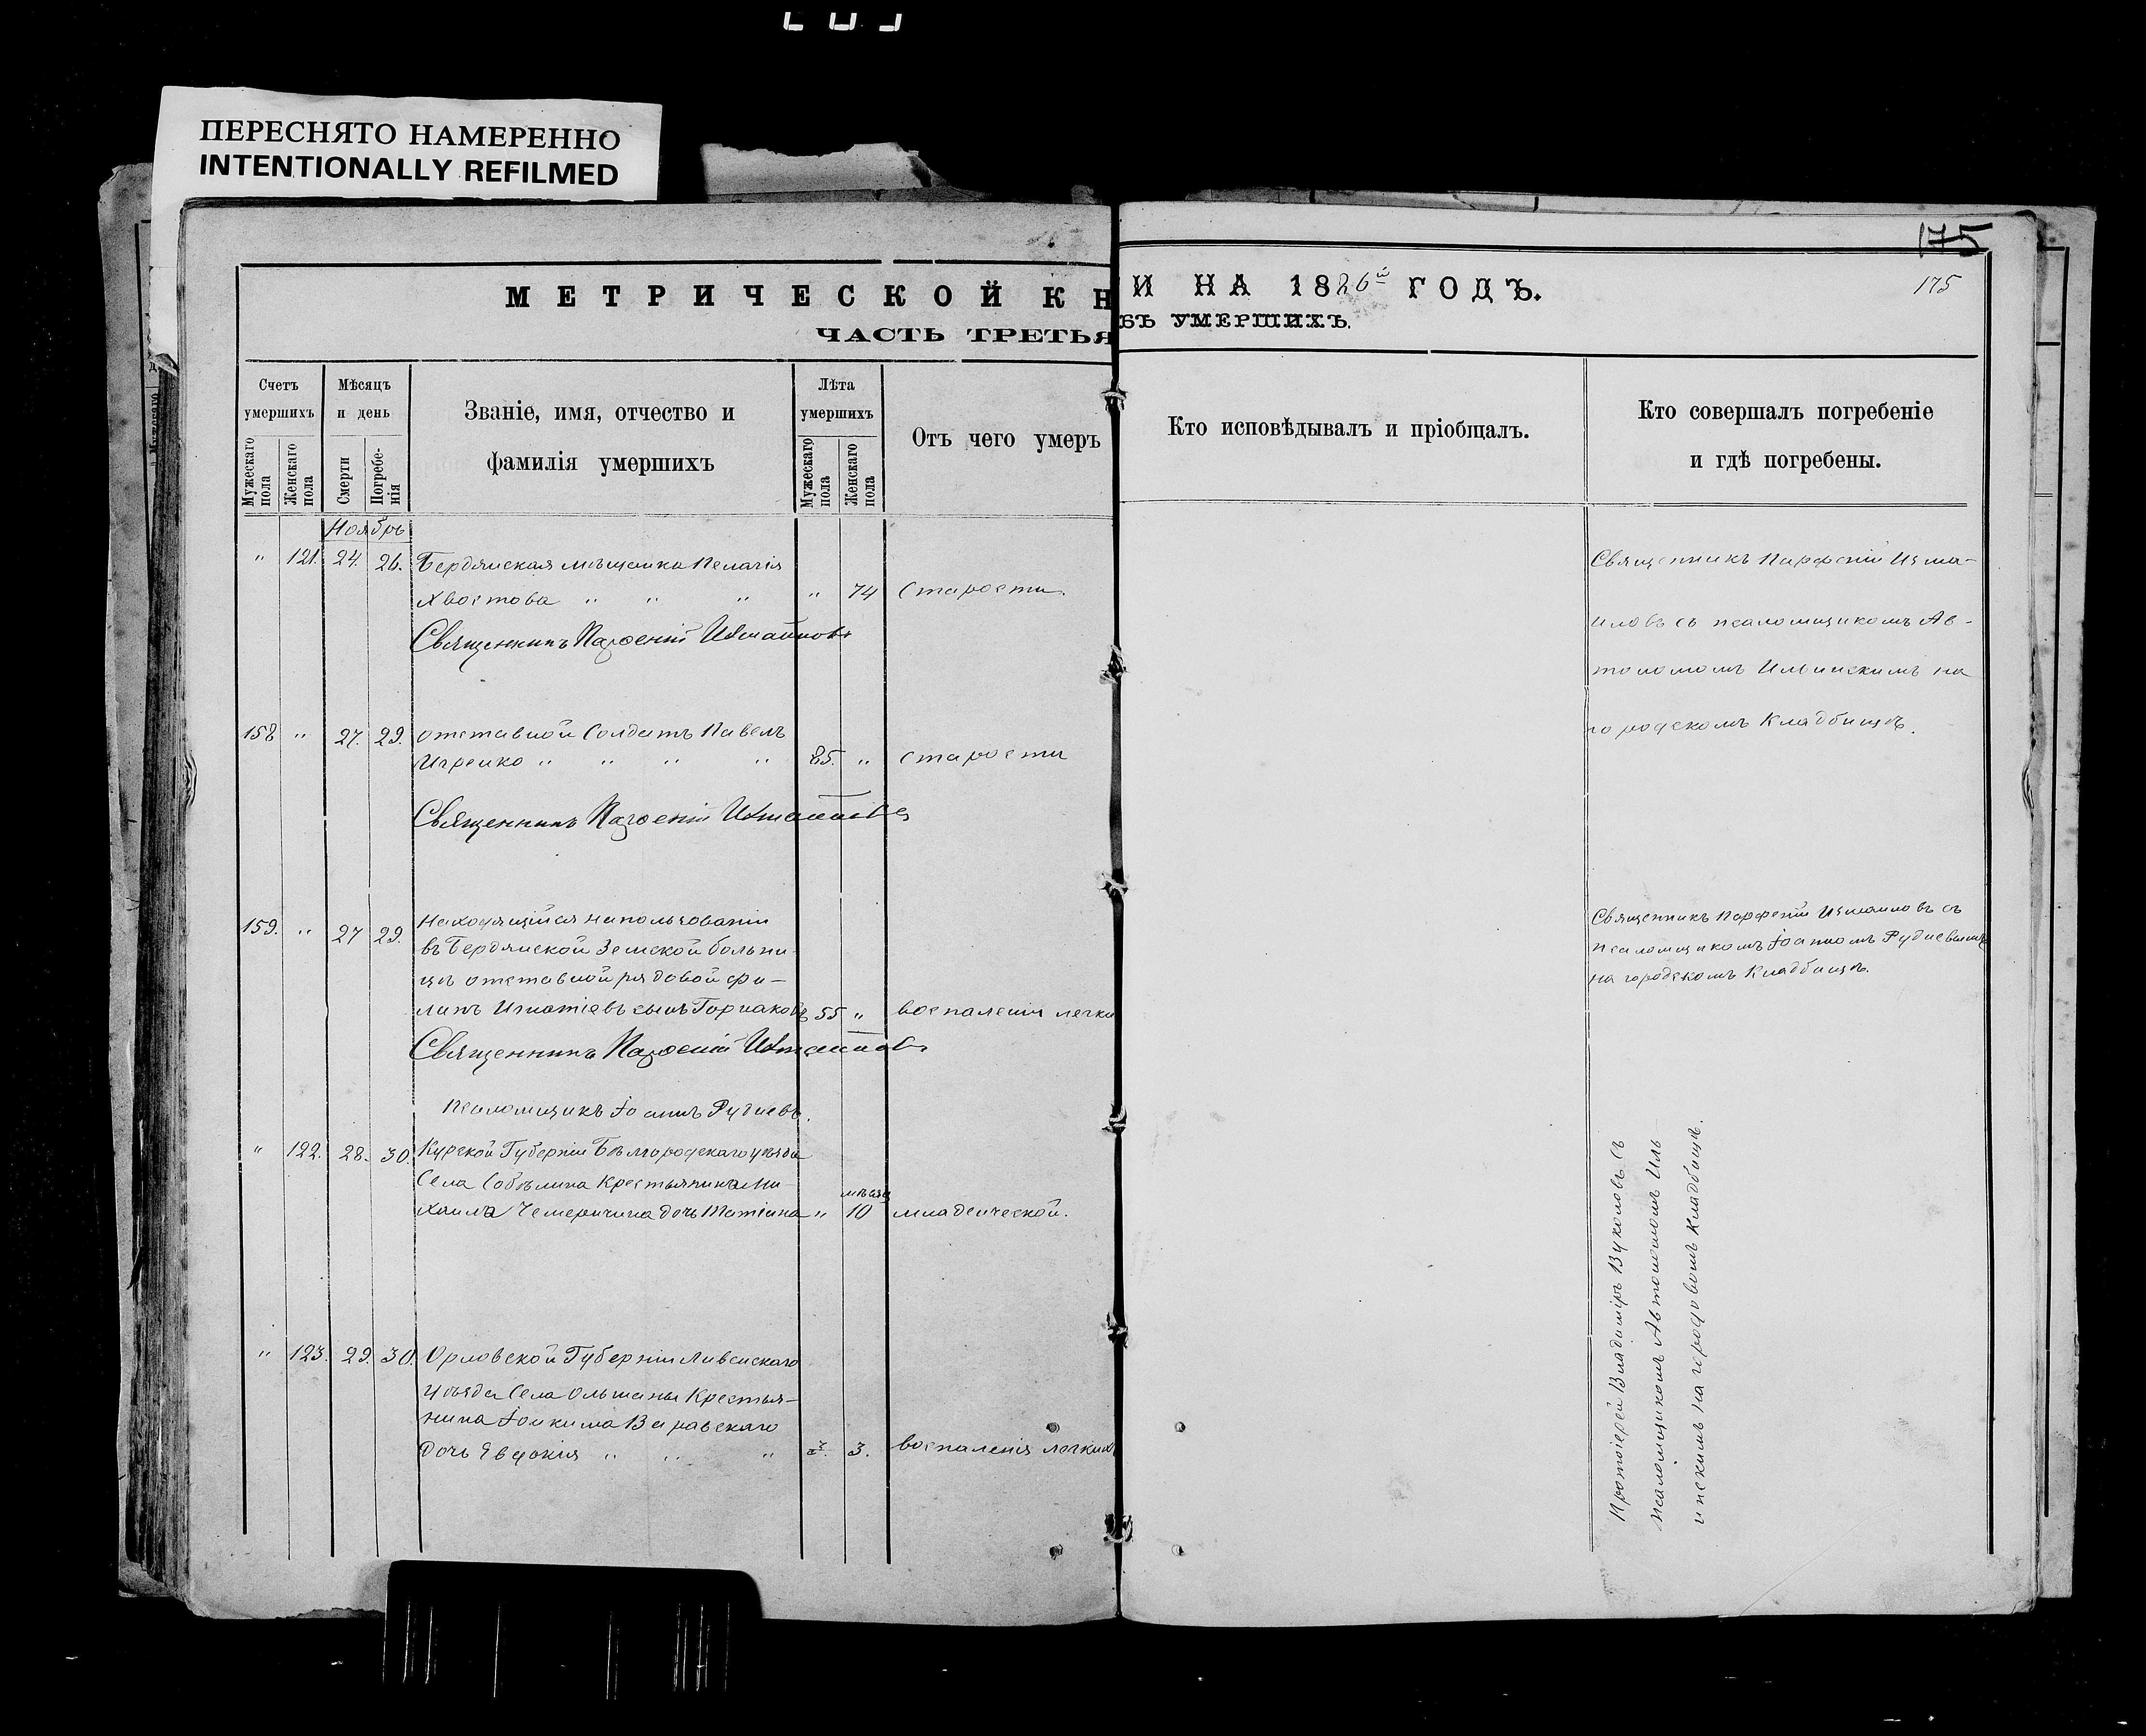 ПЕРЕСНЯТО НАМЕРЕННО
INTENTIONALLY REFILMED
175
175
МЕТРИЧЕСКОЙ КН
И НА 1886й ГОДЪ.
ЧАСТЬ ТРЕТЬЯ
БЪ УМЕРШИХЪ.
Счетъ умершихъ
Мужескаго пола
Женскаго пола
Мѣсяцъ и день
Смерти
Погребе-
нія
Званіе, имя, отчество и
фамилія умершихъ
Лѣта умершихъ
Мужескаго пола
Женскаго пола
Отъ чего умеръ
Кто исповѣдывалъ и пріобщалъ.
Кто совершалъ погребеніе
и гдѣ погребены.
Ноябрь
" 121. 24. 26. Бердянская мѣщанка Пелагія
Хвостова " " " " 74 Старости.
Священникъ Парѳеній Измаиловъ
Священникъ Парфеній Изма-
иловъ съ псаломщикомъ Ав-
тономомъ Ильинскимъ на
городскомъ Кладбищѣ.
158 " 27. 29. отставной Солдатъ Павелъ
" " " " 85. " старости
Священникъ Парѳеній Измаиловъ
159. " 27 29. Находящійся на пользованіи
въ Бердянской Земской больни-
цѣ отставной рядовой Фи-
липъ Игнатіевъ сынъ Горпаковъ 55 " воспаленія легки
Священникъ Парѳеній Измаиловъ
Псаломщикъ Іоаннъ Рудневъ.
Священникъ Парфеній Измаиловъ съ
псаломщикомъ Іоанномъ Рудневымъ
на городскомъ Кладбищѣ.
" 122. 28. 30. Курской Губерніи Бѣлгородскаго уѣзда
Села Крестьянина Ми-
хаила Чемеричина дочь Татіана " мѣсяц 10 младенческой.
" 123. 29. 30. Орловской Губерніи Ливенскаго
уѣзда Села Ольшаны Крестья-
нина Іоакима
дочь Евдокія " " " 3. воспаленія легких
Протоіерей Владиміръ Вуколовъ съ
псаломщикомъ Автономомъ Иль
инскимъ на городовомъ Кладбищѣ.